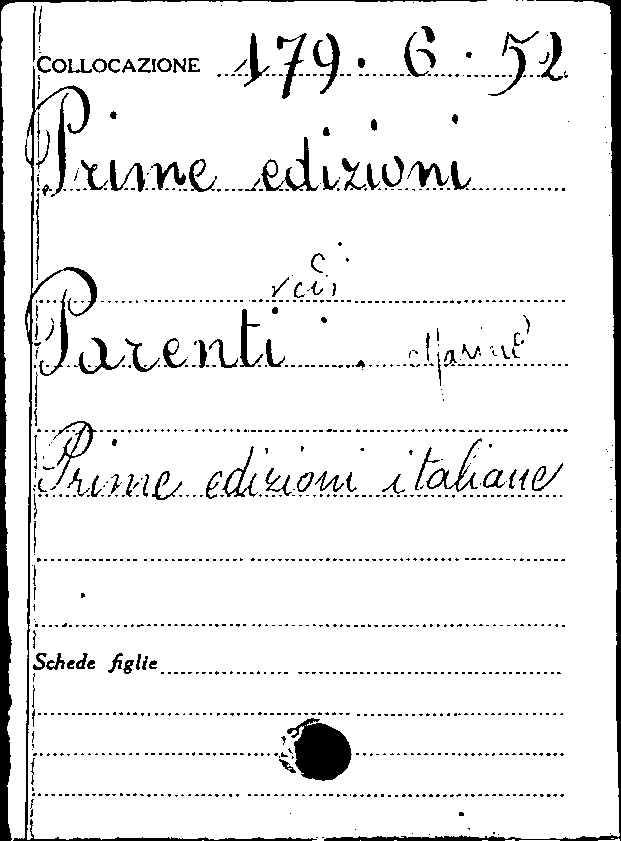 COLLOCAZIONE 179. 6. 52
Prime edizioni
vedi
Parenti. Marino
Prime edizioni italiane
Schede figlie